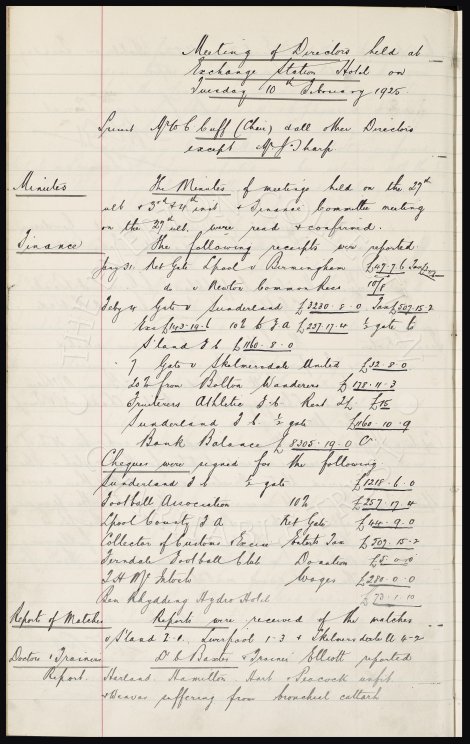 Meeting of Directors held at
Exchange Station Hotel on
Tuesday 10th February 1925.
Present Mr W C Cuff (Chair) & all other Directors
except Mr J Sharp
Minutes The Minutes of meetings held on the 27th
ult & 3rd & 4th inst & Finance Committee meeting
on the 27th ult. were read & confirmed.
Finance The following receipts were reported
Jany 31 Net Gate Lpool v Birmingham £49.7.6 Tax
do v Newton Common Recs 10/8
Feby 4 Gate v Sunderland £3230.8.0 Tax £507.15.2
Exs £143.19.6 10% to F A £257.17.4 ½ gate to
S'land F C £1160.8.0
7 Gate v Skelmersdale United £32.8.0
20% from Bolton Wanderers £178.11.3
Fruiterers Athletic F.C. Rent £15
Sunderland F.C. ½ gate £1160.10.9
Bank Balance £8305.19.0 Cr
Cheques were signed for the following.
Sunderland F C ½ gate £1218.6.0
Football Association 10% £257.17.4
Lpool County F A Net Gate £44.9.0
Collector of Customs & Excise Entert. Tax £507.15.2
Ferndale Football Club Donation £5.0.0
T H McIntosh Wages £280.0.0
Ben Rhydding Hydro Hotel £73.1.10
Reports of Matches Reports were received of the matches
v S'land Liverpool 1-3 & Skelmersdale U 4-2
Doctors & Trainers Dr C Baxter & Trainer Elliott reported
Report. Harland, Hamilton, Hart & Peacock unfit
& Weaver suffering from bronchial cattarh